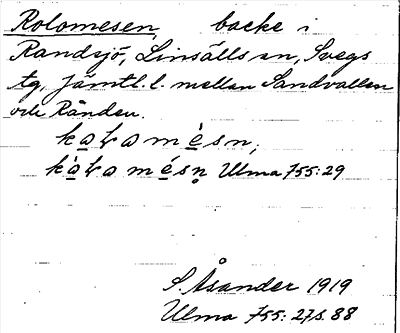 Rolomesen, backe i
Randsjö, Linsälls sn, Svegs
tg, Jämtl. l. mellan Sandvallen
och Rånden.
kaɽamèsn,
kàɽamésn̥ Ulma 755:29
S. Åsander 1919
Ulma 755:27 s. 88